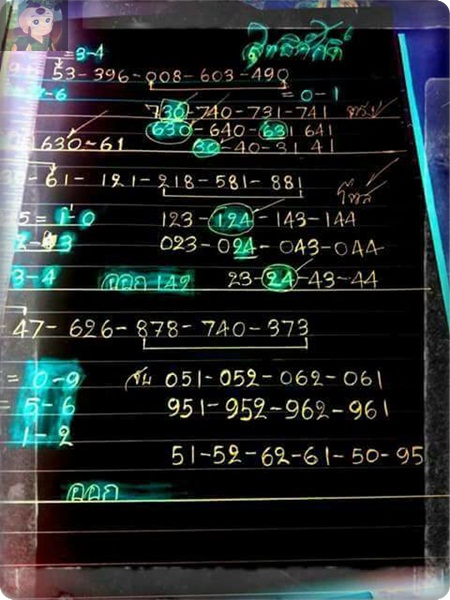 สิทธิศักดิ์
=3-4
53-396-008-603-490
-6
0-1
730-740-731-741
630-640-631 641
630-61
30-40-31 41
61-121-218-581-881
5=1-0
123-124-143-144
2-3
023-024-043-044
3-4
ออก 149
23-24-43-44
47-626-878-740-373
=0-9
051-052-062-061
=5-6
951-952-962-961
1-2
51-52-62-61-50-95
ออก